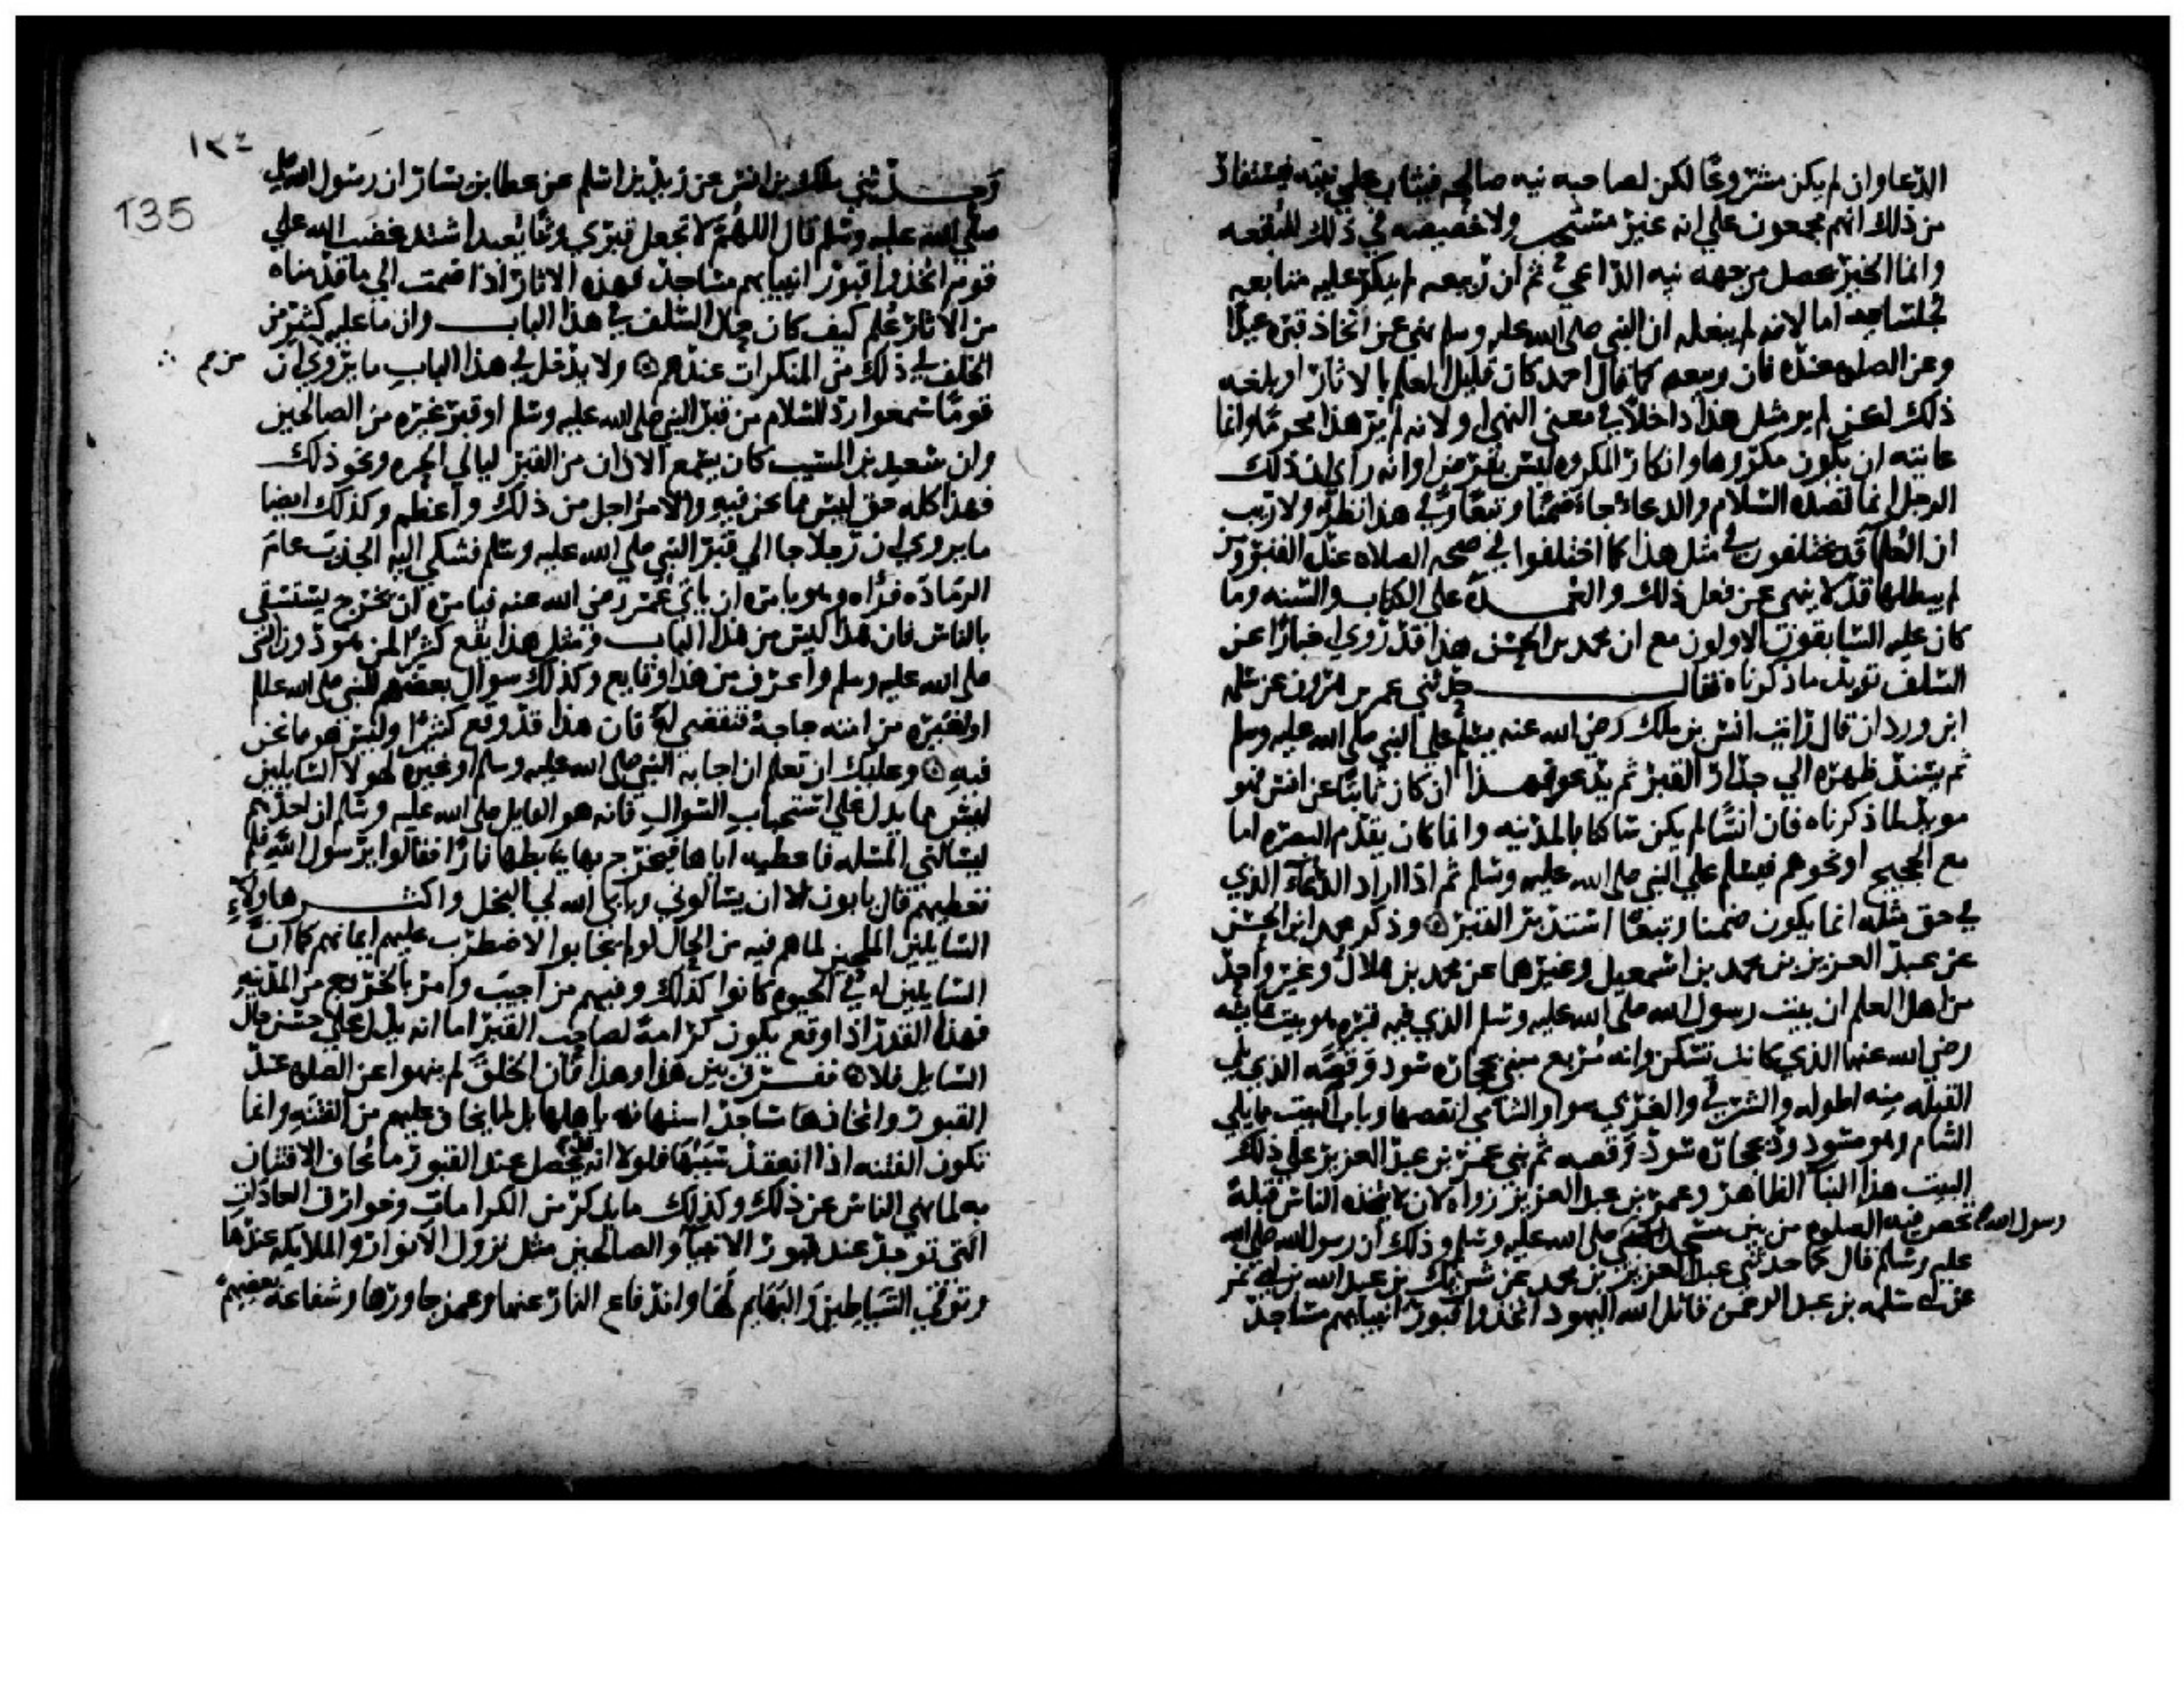 الدعا وان لم يكن مشروعا لكن لصاحبه نيه صالحه فيثاب علي نيته فيستفاد
من ذلك انهم مجمعون علي انه غير مستحب ولا خصيصه في ذلك للبقعه
وانما الخير يحصل من جهه نيه الداعي ثم ان ربيعه لم ينكر عليه متابعه
لمحمد اما لانه لم يبلغه ان النبي صلي الله عليه وسلم نهي عن اتخاذ قبره عيدا
وعن الصلاه عنده فان ربيعه كما قال احمد كان قليل العلم بالاثار او بلغه
ذلك لكن لم ير مثل هذا داخلا في معني النهي او لانه لم ير هذا محرما وانما
غايته ان يكون مكروها وانكار المكروه ليس بفرض او انه راي ان ذلك
الرجل انما قصده السلام والدعا جا ضمنا وتبعا وفي هذا نظر ولا ريب
ان العلما قد يختلفون في مثل هذا كما اختلفوا في صحه الصلاه عند القبر ومن
لم يبطلها قد لا ينهي عن فعل ذلك والعمده علي الكتاب والسنه وما
كان عليه السابقون الاولون مع ان محمد بن الحسن هذا قد روي اخبارا عن
السلف تويد ما ذكرناه فقال حدثني عمر بن هرون عن سلمه
ابن وردان قال رايت انس بن ملك رضي الله عنه يسلم علي النبي صلي الله عليه وسلم
ثم يسند ظهره الي جدار القبر ثم يدعو فهذا ان كان ثابتا عن انس فهو
مويد لما ذكرناه فان انسا لم يكن ساكنا بالمدينه وانما كان يقدم البصره اما
مع الحجيج او نحوهم فيسلم علي النبي صلي الله عليه وسلم ثم اذا اراد الدعاء الذي
في حق مثله انما يكون ضمنا وتبعا استدبر القبر وذكر محمد ابن الحسن
عن عبد العزيز بن محمد بن اسمعيل وغيرها عن محمد بن هلال وغير واحد
من اهل العلم ان بيت رسول الله صلي الله عليه وسلم الذي فيه قبره هو بيت عايشه
رضي الله عنها الذي كانت تسكن وانه مربع مبني بحجاره سود وقصه الذي يلي
القبله منه اطوله والشرقي والغربي سوا والشامي انقصها وباب البيت مما يلي
الشام وهو مسدود بحجاره سود وقصه ثم بني عمر بن عبد العزيز علي ذلك
البيت هذا البنا الظاهر وعمر بن عبد العزيز زواه لان لا يتخذه الناس قبله
تخص فيه الصلوه من بين مسجد رسول الله صلي الله عليه وسلم وذلك ان رسول الله صلي الله
عليه وسلم قال كما حدثني عبد العزيز بن محمد عن شريك بن عبد الله بن ابي نمر
عن ابي سلمه بن عبد الرحمن قاتل الله اليهود اتخذوا قبور انبيايهم مساجد
١٣٤
135
وحدثني ملك بن انس عن زيد بن اسلم عن عطا بن يسار ان رسول الله
صلي الله عليه وسلم قال اللهم لا تجعل قبري وثنا يعبد اشتد غضب الله علي
قوم اتخذوا قبور انبيايهم مساجد فهذه الاثار اذا ضمت الي ما قدمناه
من الاثار علم كيف كان حال السلف في هذا الباب وان ما عليه كثير من
الخلف في ذلك من المنكرات عندهم ولا يدخل في هذا الباب ما يروي ان
قوما سمعوا رد السلام من قبر النبي صلي الله عليه وسلم او قبر غيره من الصالحين
وان سعيد بن المسيب كان يسمع الاذان من القبر ليالي الحره ونحو ذلك
فهذا كله حق ليس مما نحن فيه والامر اجل من ذلك واعظم وكذلك ايضا
ما يروي ان رجلا جا الي قبر النبي صلي الله عليه وسلم فشكي اليه الجدب عام
الرماده فراه وهو يامره ان ياتي عمر رضي الله عنه فيامره ان يخرج يستسقي
بالناس فان هذا ليس من هذا الباب ومثل هذا يقع كثيرا لمن هو دون النبي
صلي الله عليه وسلم واعرف من هذا وقايع وكذلك سوال بعضهم للنبي صلي الله عليه وسلم
او لغيره من امته حاجة فتقضي له فان هذا قد وقع كثيرا وليس هو مما نحن
فيه وعليك ان تعلم ان اجابه النبي صلي الله عليه وسلم او غيره لهولا السايلين
ليس مما يدل علي استحباب السوال فانه هو القايل صلي الله عليه وسلم ان احدهم
ليسالني المسله فاعطيه اياها فيخرج بها يتابطها نارا فقالوا يرسول الله فلم
تعطيهم قال يابون الا ان يسالوني ويابي الله لي البخل واكثر هاولاء
السايلين الملحين لما هم فيه من الحال لو لم يجابوا لاضطرب عليهم ايمانهم كما ان
السايلين له في الحيوه كانوا كذلك وفيهم من اجيب وامر بالخروج من المدينه
فهذا القدر اذا وقع يكون كرامة لصاحب القبر اما انه يدل علي حسن حال
السايل فلا ففرق بين هذا وهذا فان الخلق لم ينهوا عن الصلاه عند
القبور واتخاذها مساجد استهانه باهلها بل لما يخاف عليهم من الفتنه وانما
تكون الفتنه اذا انعقد سببها فلولا انه قد يحصل عند القبور ما يخاف الافتتان
به لما نهي الناس عن ذلك وكذلك ما يذكر من الكرامات وخوارق العادات
التي توجد عند قبور الانبيا والصالحين مثل نزول الانوار والملايكه عندها
وتوقي الشياطين والبهايم لها واندفاع النار عنها وعمن جاورها وشفاعه بعضهم